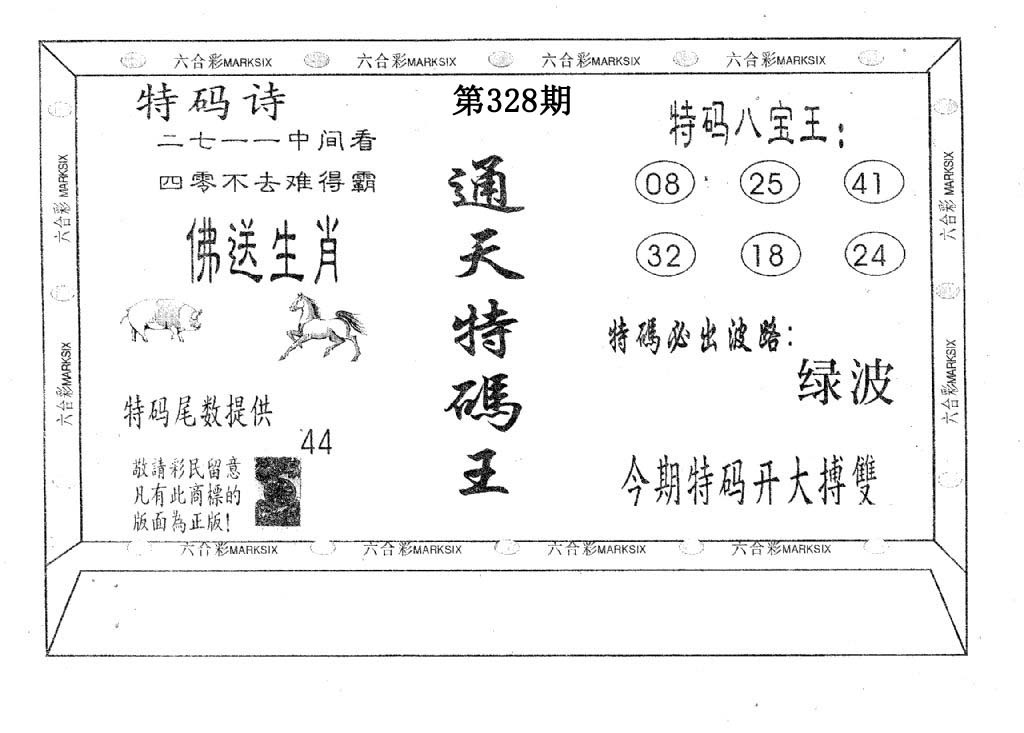 六合彩MARKSIX 六合彩MARKSIX 六合彩MARKSIX 六合彩MARKSIX
特码诗
二七一一中间看
四零不去难得霸
佛送生肖
特码尾数提供
44
敬請彩民留意
凡有此商標的
版面為正版!
第328期
通天特碼王
特码八宝王:
08 25 41
32 18 24
特碼必出波路:
绿波
今期特码开大搏雙
六合彩MARKSIX
六合彩MARKSIX
六合彩MARKSIX
六合彩MARKSIX
六合彩MARKSIX 六合彩MARKSIX 六合彩MARKSIX 六合彩MARKSIX